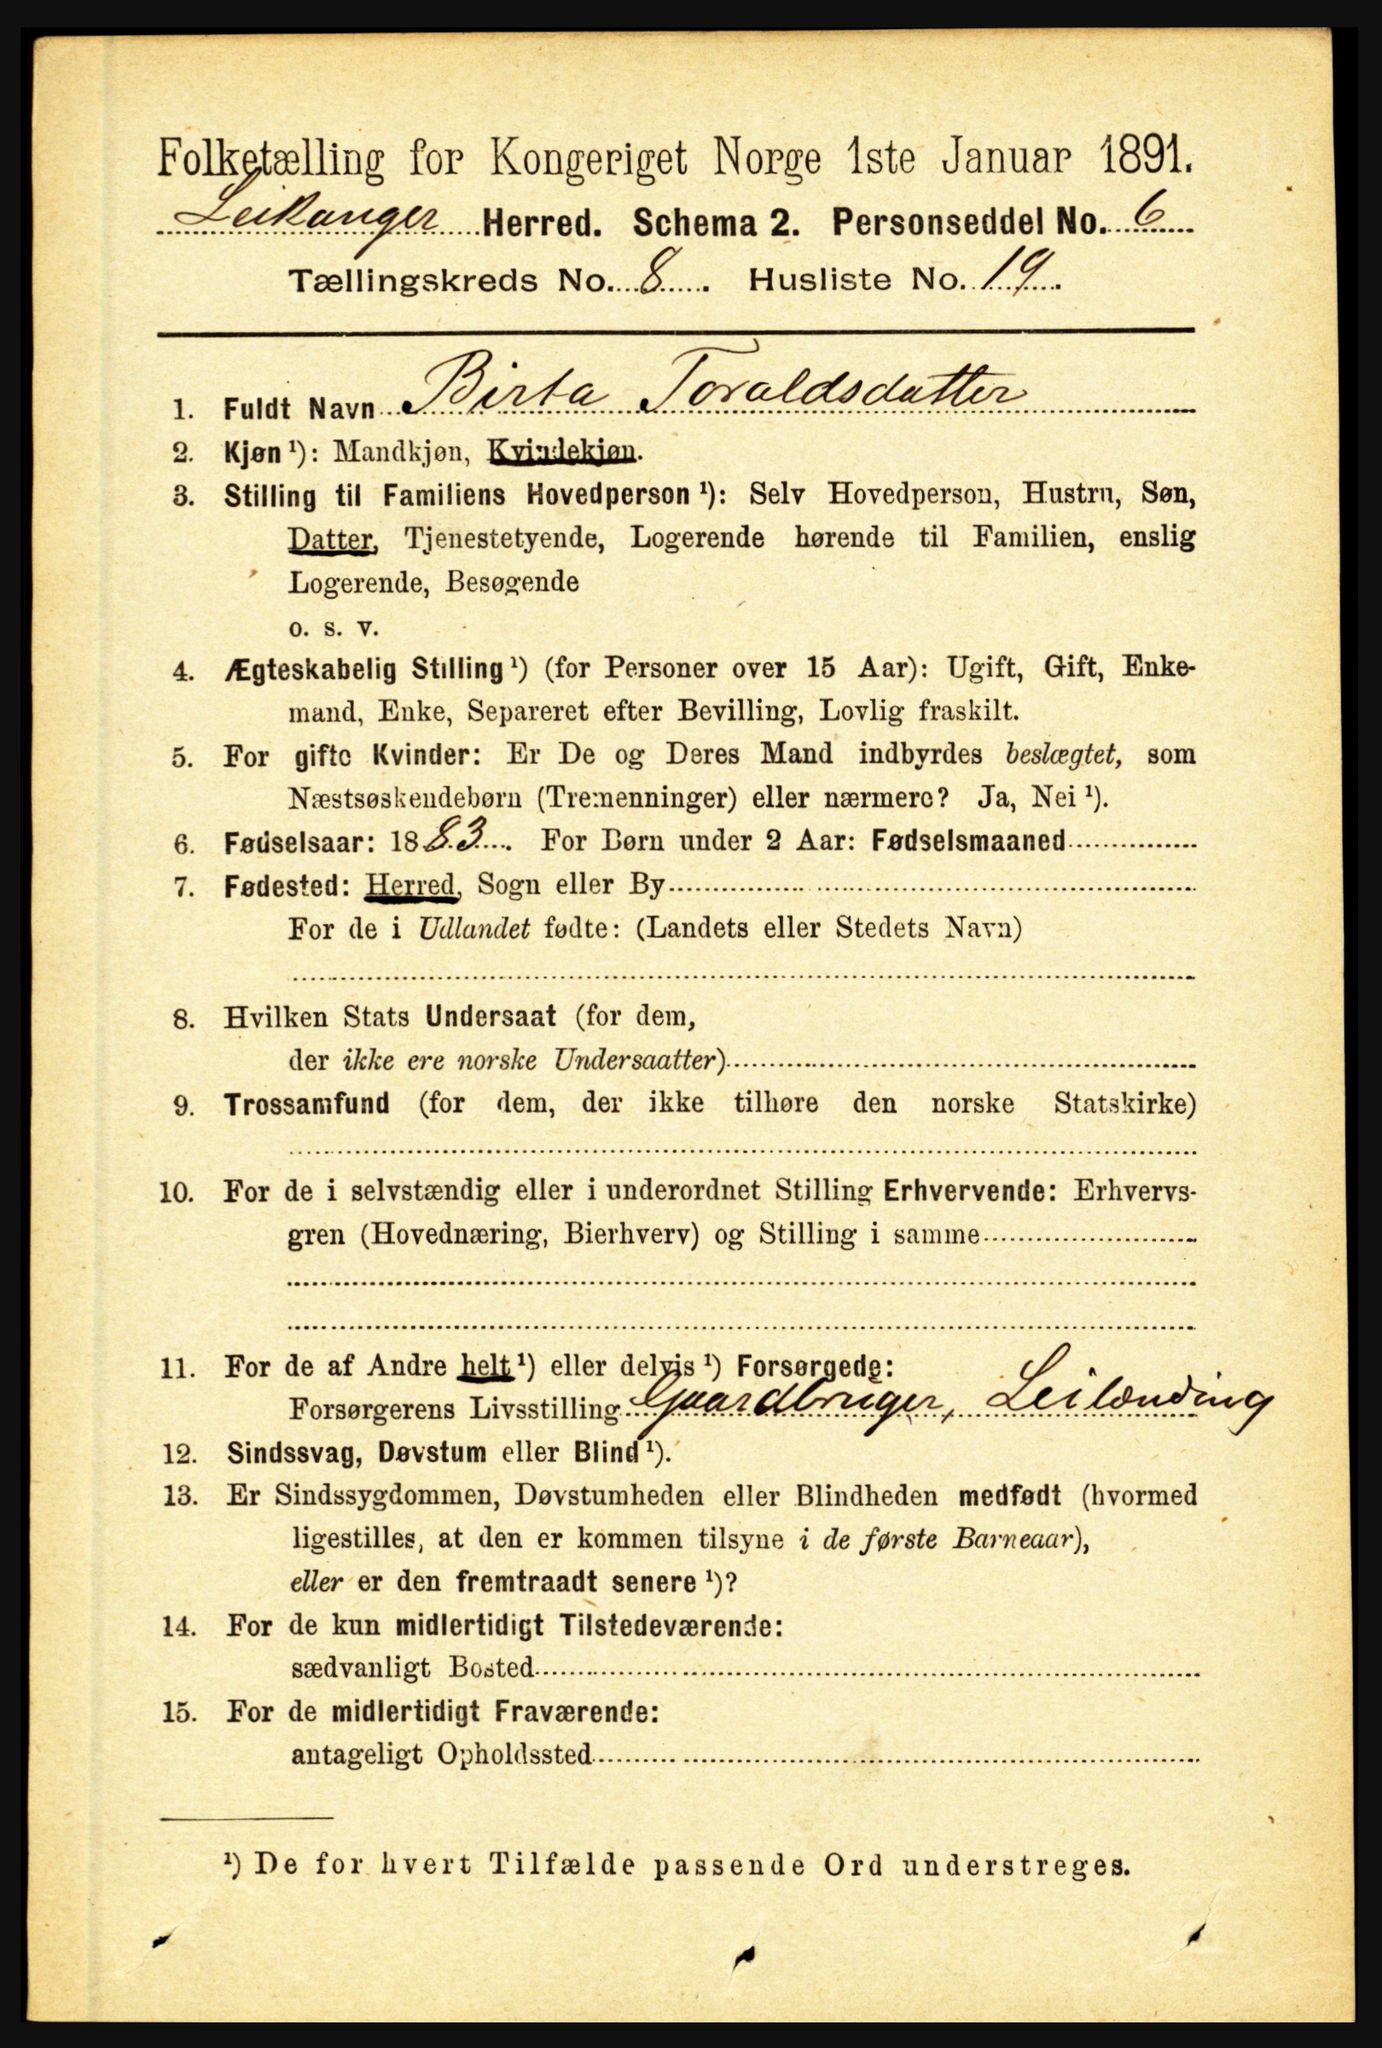 Folketælling for Kongeriget Norge 1ste Januar 1891.
Leikanger Herred. Schema 2. Personseddel No. 6
Tællingskreds No. 8. Husliste No. 19.
1. Fuldt Navn Birta Toraldsdatter
2. Kjøn ¹): Mandkjøn, Kvindekjøn.
3. Stilling til Familiens Hovedperson ¹): Selv Hovedperson, Hustru, Søn,
Datter, Tjenestetyende, Logerende hørende til Familien, enslig
Logerende, Besøgende
o. s. v.
4. Ægteskabelig Stilling ¹) (for Personer over 15 Aar): Ugift, Gift, Enke-
mand, Enke, Separeret efter Bevilling, Lovlig fraskilt.
5. For gifte Kvinder: Er De og Deres Mand indbyrdes beslægtet, som
Næstsøskendebørn (Tremenninger) eller nærmere? Ja, Nei ¹).
6. Fødselsaar: 1883. For Børn under 2 Aar: Fødselsmaaned
7. Fødested: Herred, Sogn eller By
For de i Udlandet fødte: (Landets eller Stedets Navn)
8. Hvilken Stats Undersaat (for dem,
der ikke ere norske Undersaatter)
9. Trossamfund (for dem, der ikke tilhøre den norske Statskirke)
10. For de i selvstændig eller i underordnet Stilling Erhvervende: Erhvervs-
gren (Hovednæring, Bierhverv) og Stilling i samme
11. For de af Andre helt ¹) eller delvis ¹) Forsørgede:
Forsørgerens Livsstilling Gaardbruger, Leilænding
12. Sindssvag, Døvstum eller Blind ¹).
13. Er Sindssygdommen, Døvstumheden eller Blindheden medfødt (hvormed
ligestilles, at den er kommen tilsyne i de første Barneaar),
eller er den fremtraadt senere ¹)?
14. For de kun midlertidigt Tilstedeværende:
sædvanligt Bosted
15. For de midlertidigt Fraværende:
antageligt Opholdssted
¹) De for hvert Tilfælde passende Ord understreges.